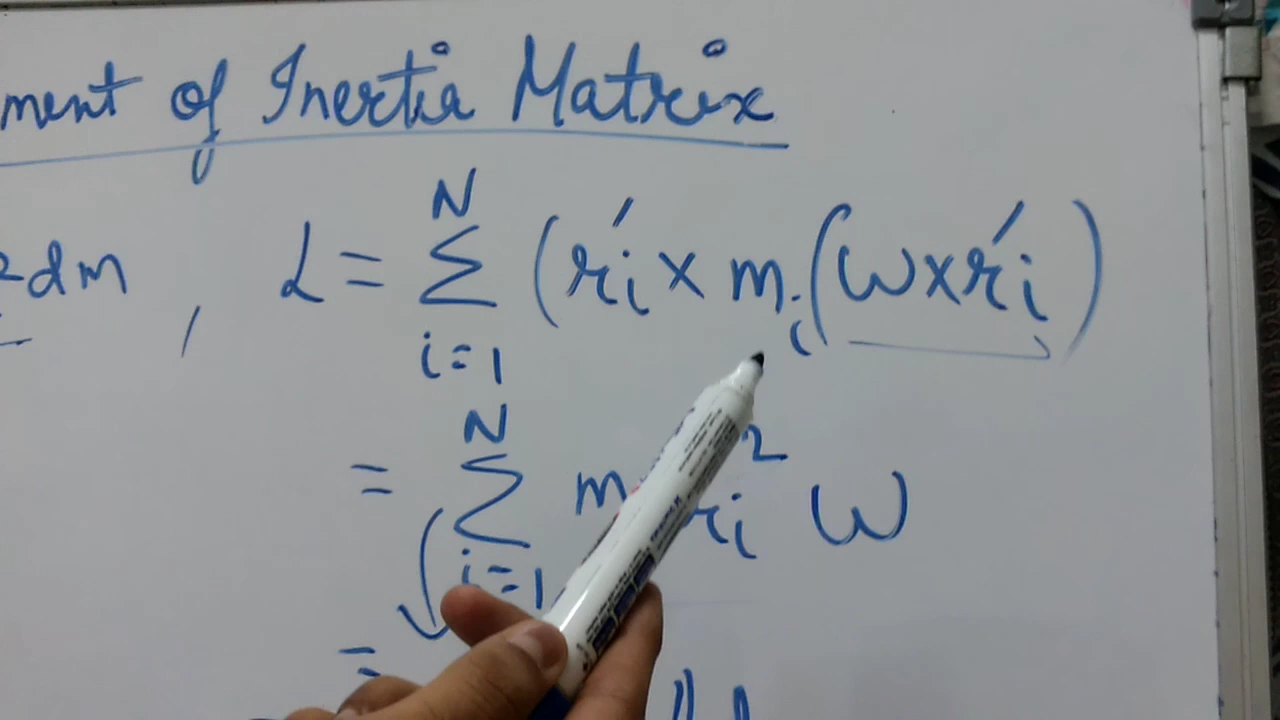 ment of Inertia Matrix
²dm , L = N Σ i=1 (r′i × mi (ω × r′i)
= N Σ i=1 m ri² ω
=